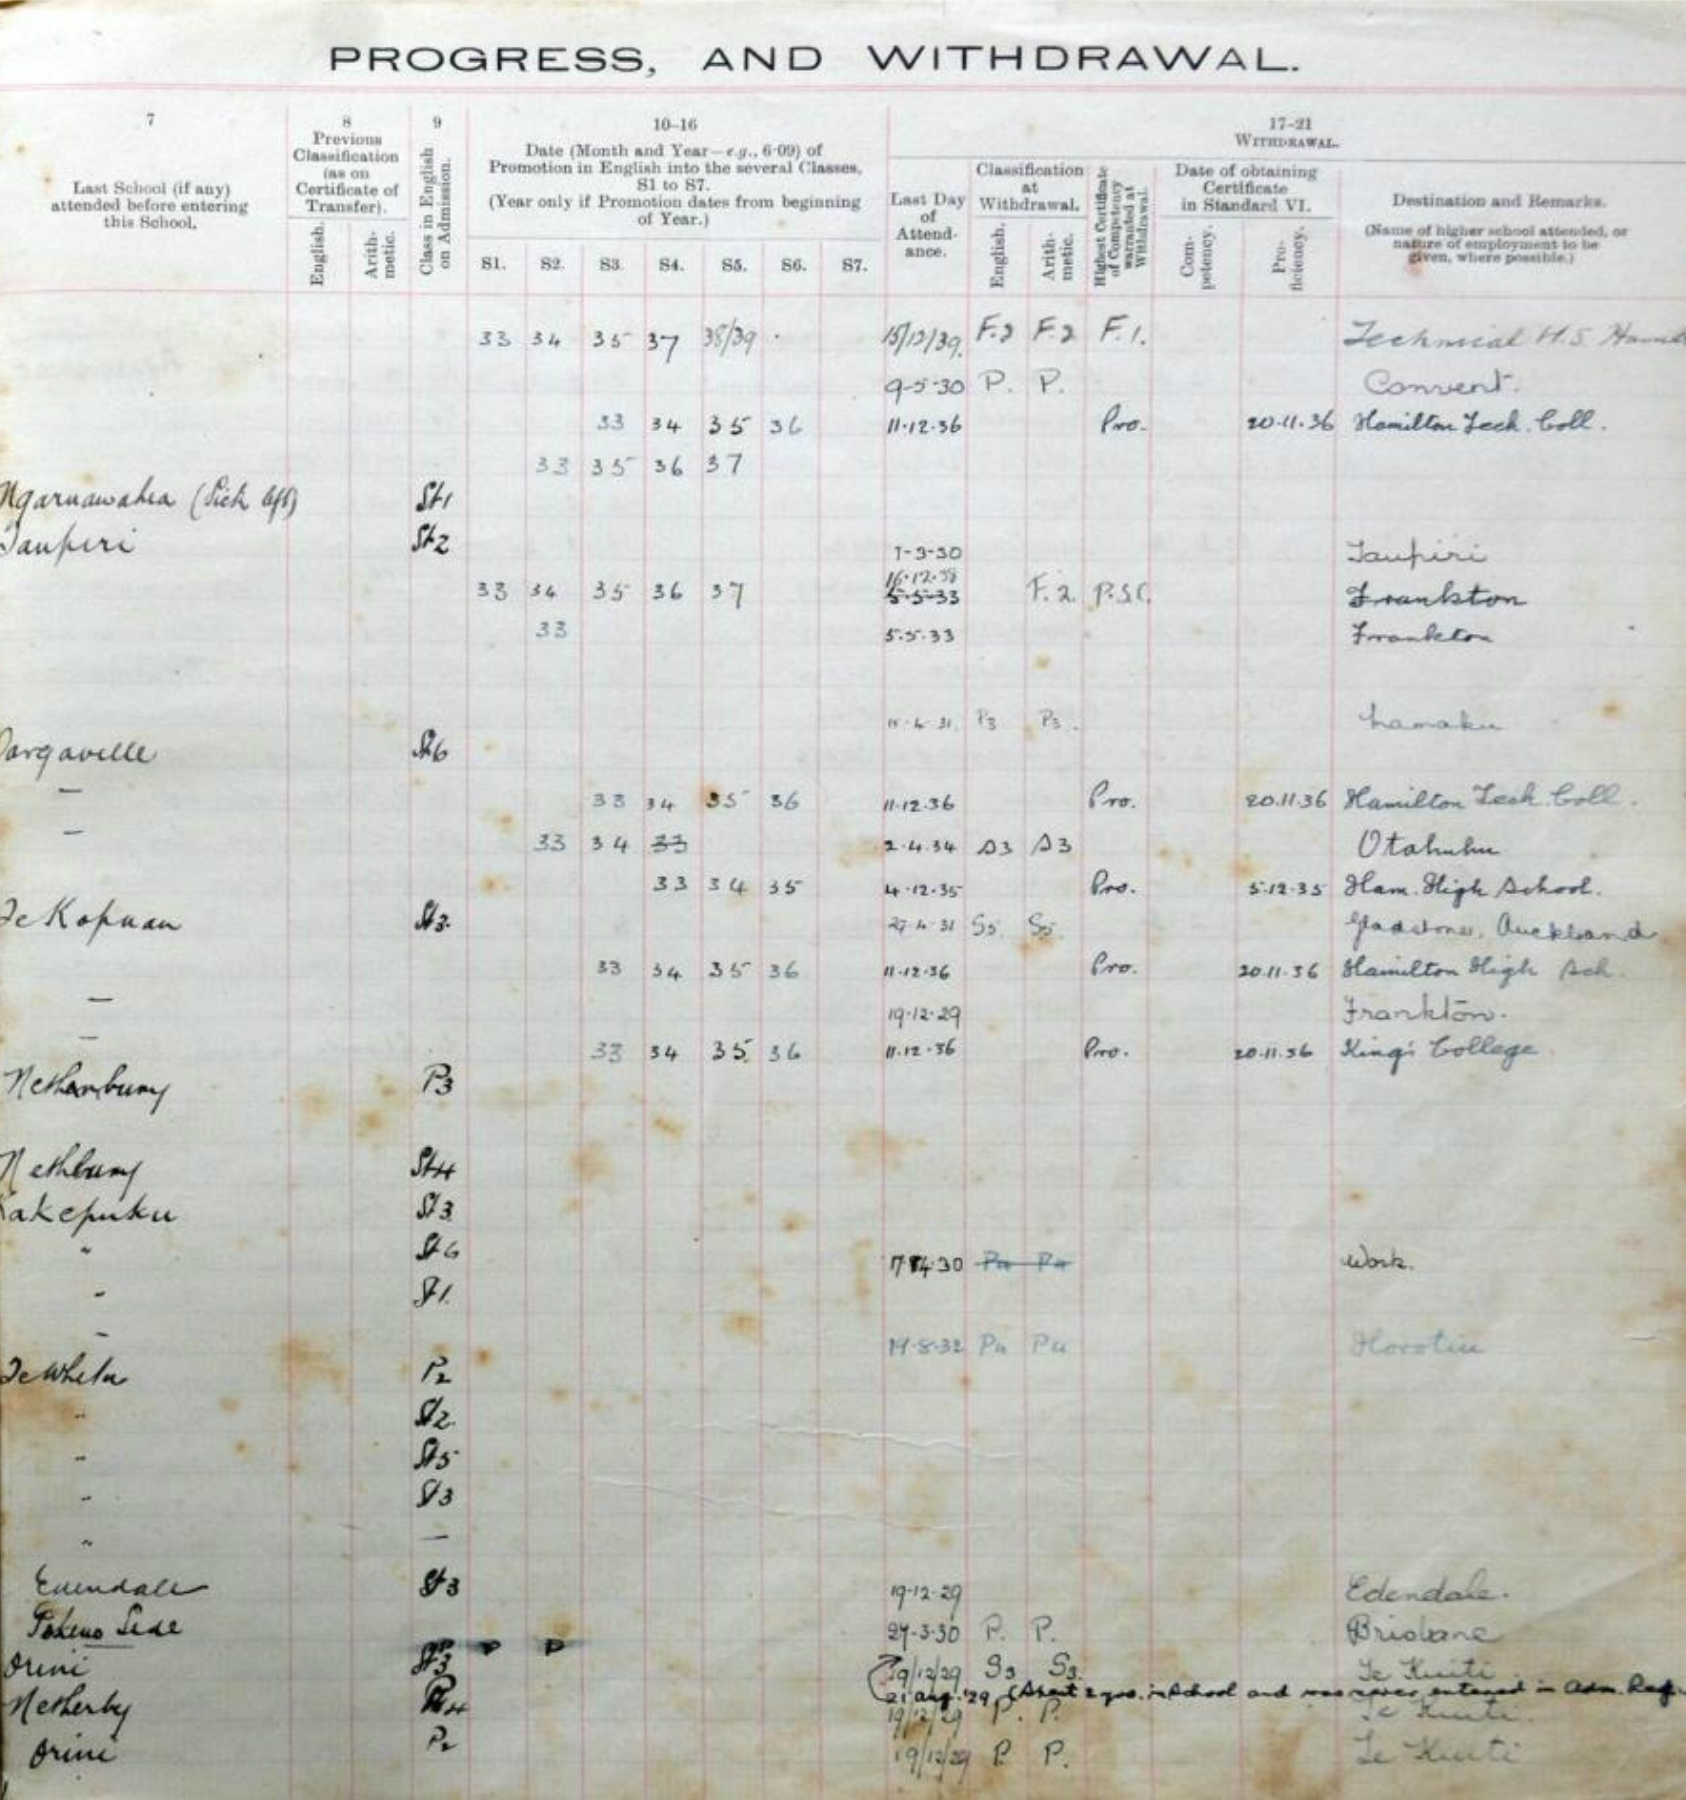 PROGRESS, AND WITHDRAWAL.
7
8
9
10-16
17-21
Last School (if any) attended before entering this School.
Previous Classification (as on Certificate of Transfer).
English.
Arith-metic.
Class in English on Admission.
Date (Month and Year—e.g., 6-09) of Promotion in English into the several Classes, S1 to S7.
(Year only if Promotion dates from beginning of Year.)
S1. S2. S3. S4. S5. S6. S7.
WITHDRAWAL.
Last Day of Attend-ance.
Classification at Withdrawal.
English.
Arith-metic.
Highest Certificate of Competency warranted at Withdrawal.
Date of obtaining Certificate in Standard VI.
Com-petency.
Pro-ficiency.
Destination and Remarks.
(Name of higher school attended, or nature of employment to be given, where possible.)
33 34 35 37 38/39 15/12/39. F.2 F.2 F.1. Technical H.S.
9-5-30 P. P. Convent.
33 34 35 36 11.12.36 Pro. 20.11.36 Hamilton Tech. Coll.
33 35 36 37
Ngaruawahia St1
Taupiri St2 7-3-30 Taupiri
16.12.38
33 34 35 36 37 5-5-33 F.2. P.S.C. Frankton
33 5.5.33 Frankton
31. P3 P3.
Dargaville St6
— 33 34 35 36 11.12.36 Pro. 20.11.36 Hamilton Tech. Coll.
— 33 34 33 2.4.34 S3 S3 Otahuhu
33 34 35 4.12.35 Pro. 5.12.35 Ham. High School.
St3. 27.4.31 S5. S5. Auckland
33 34 35 36 11.12.36 Pro. 20.11.36 Hamilton High Sch.
— 19-12-29 Frankton.
— 33 34 35 36 11.12.36 Pro. 20.11.36 King's College
P3
St4
Kakepuku St3
" St6 30 Work.
" St1.
" 8.32 Horotiu
Te Whetu P2
" St2.
" St5
" St3
" —
St3 19-12-29 Edendale.
27-3-30 P. P. Brisbane
P P
Orini St3 19/12/29 S3 S3. Te Kuiti
21 Aug. '29 (About 2 yrs. in School and was never entered in Adm. Reg.
Netherby 19/12/29 P. P. Te Kuiti.
Orini P2 19/12/29 P. P. Te Kuiti